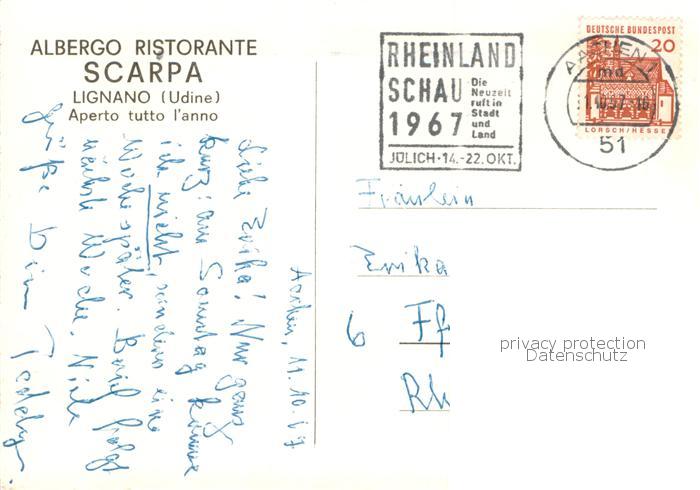 ALBERGO RISTORANTE
SCARPA
LIGNANO (Udine)
Aperto tutto l'anno
RHEINLAND
SCHAU
1967
Die
Neuzeit
ruft in
Stadt
und
Land
JÜLICH·14.-22.OKT.
DEUTSCHE BUNDESPOST
20
LORSCH/HESSEN
AACHEN 1
md
51
Aachen, 11.10.67
Liebe Erika! Nur ganz
kurz: am Sonntag komme
ich nicht, sondern eine
Woche später. Brief folgt
nächste Woche. Viele
Grüße Dein
Fräulein
Erika
6 Ff
Rh
privacy protection
Datenschutz